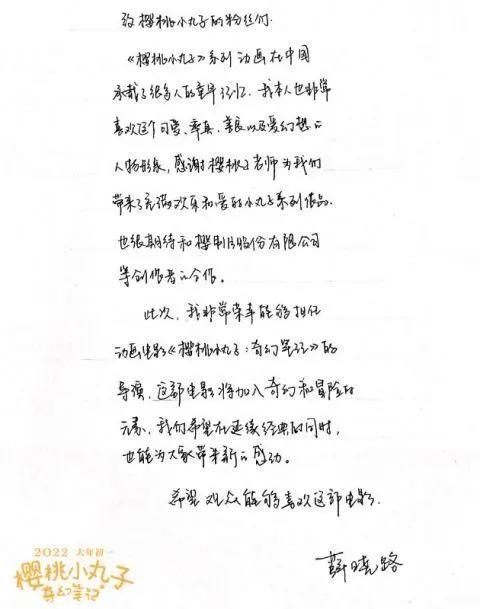 致樱桃小丸子的粉丝们.
《樱桃小丸子》系列动画在中国
承载了很多人的童年记忆. 我本人也非常
喜欢这个可爱、率真、善良以及爱幻想的
人物形象, 感谢樱桃子老师为我们
带来了充满欢乐和爱的小丸子系列作品.
也很期待和樱制片股份有限公司
等创作者的合作。
此次, 我非常荣幸能够担任
动画电影《樱桃小丸子:奇幻笔记》的
导演, 这部电影将加入奇幻和冒险的
元素, 我们希望在延续经典的同时,
也能为大家带来新的感动。
希望观众能够喜欢这部电影.
薛晓路
2022 大年初一
樱桃小丸子
奇幻笔记